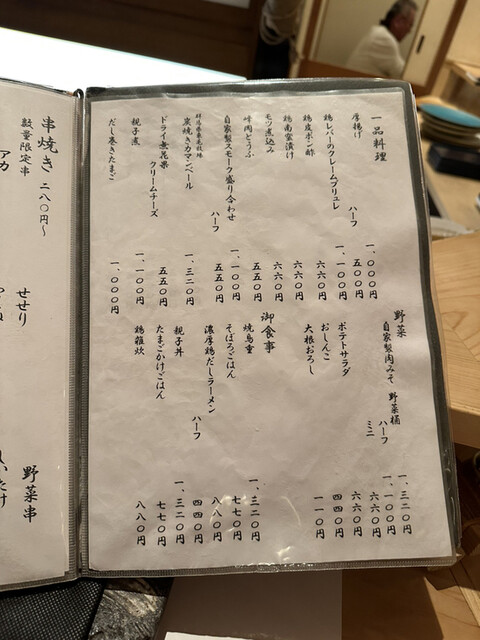 一品料理
厚揚げ 一、〇〇〇円
ハーフ 五〇〇円
鶏レバーのクレームブリュレ 一、一〇〇円
鶏皮ポン酢 六六〇円
鶏南蛮漬け 六六〇円
モツ煮込み 六六〇円
肉どうふ 五五〇円
自家製スモーク盛り合わせ 一、一〇〇円
ハーフ 五五〇円
炭焼きカマンベール 一、三二〇円
ドライ無花果 クリームチーズ 五五〇円
親子煮 一、一〇〇円
だし巻きたまご 一、〇〇〇円
野菜
自家製肉みそ 野菜桶 一、三二〇円
ハーフ 一、一〇〇円
ミニ 六六〇円
ポテトサラダ 六六〇円
おしんこ 四四〇円
大根おろし 一一〇円
御食事
焼鳥重 一、三二〇円
そぼろごはん 七七〇円
濃厚鶏だしラーメン 八八〇円
ハーフ 四四〇円
親子丼 一、三二〇円
たまごかけごはん 七七〇円
鶏雑炊 八八〇円
串焼き 二八〇円〜
数量限定串
アカ
せせり
野菜串